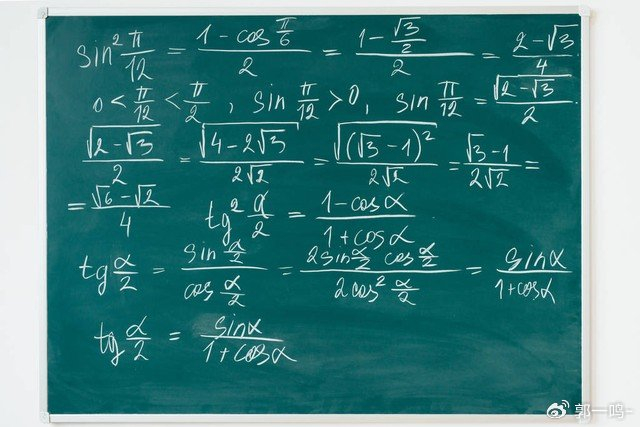 sin² π/12 = (1 - cos π/6)/2 = (1 - √3/2)/2 = (2 - √3)/4
0 < π/12 < π/2 , sin π/12 > 0, sin π/12 = √(2 - √3)/2
√(2 - √3)/2 = √(4 - 2√3)/(2√2) = √((√3 - 1)²)/(2√2) = (√3 - 1)/(2√2) =
= (√6 - √2)/4 tg² α/2 = (1 - cos α)/(1 + cos α)
tg α/2 = (sin α/2)/(cos α/2) = (2 sin α/2 cos α/2)/(2 cos² α/2) = sin α/(1 + cos α)
tg α/2 = sin α/(1 + cos α)
郭一鸣-